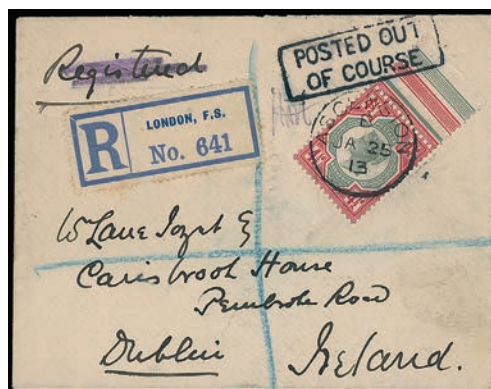 Registered
POSTED OUT
OF COURSE
R
LONDON, F.S.
No. 641
JA 25
13
W Lane Joynt
Carisbrook House
Pembroke Road
Dublin
Ireland.